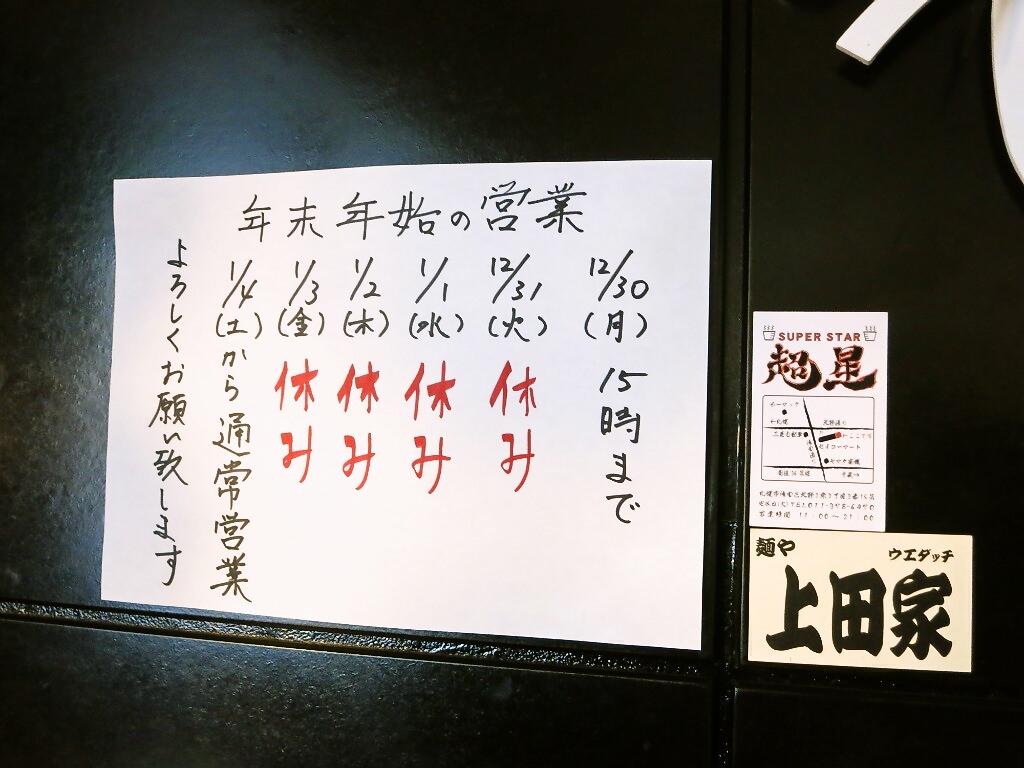 年末年始の営業
12/30(月) 15時まで
12/31(火) 休み
1/1(水) 休み
1/2(木) 休み
1/3(金) 休み
1/4(土)から通常営業
よろしくお願い致します
SUPER STAR
超星
営業時間 11:00〜21:00
麺や
ウエダッチ
上田家